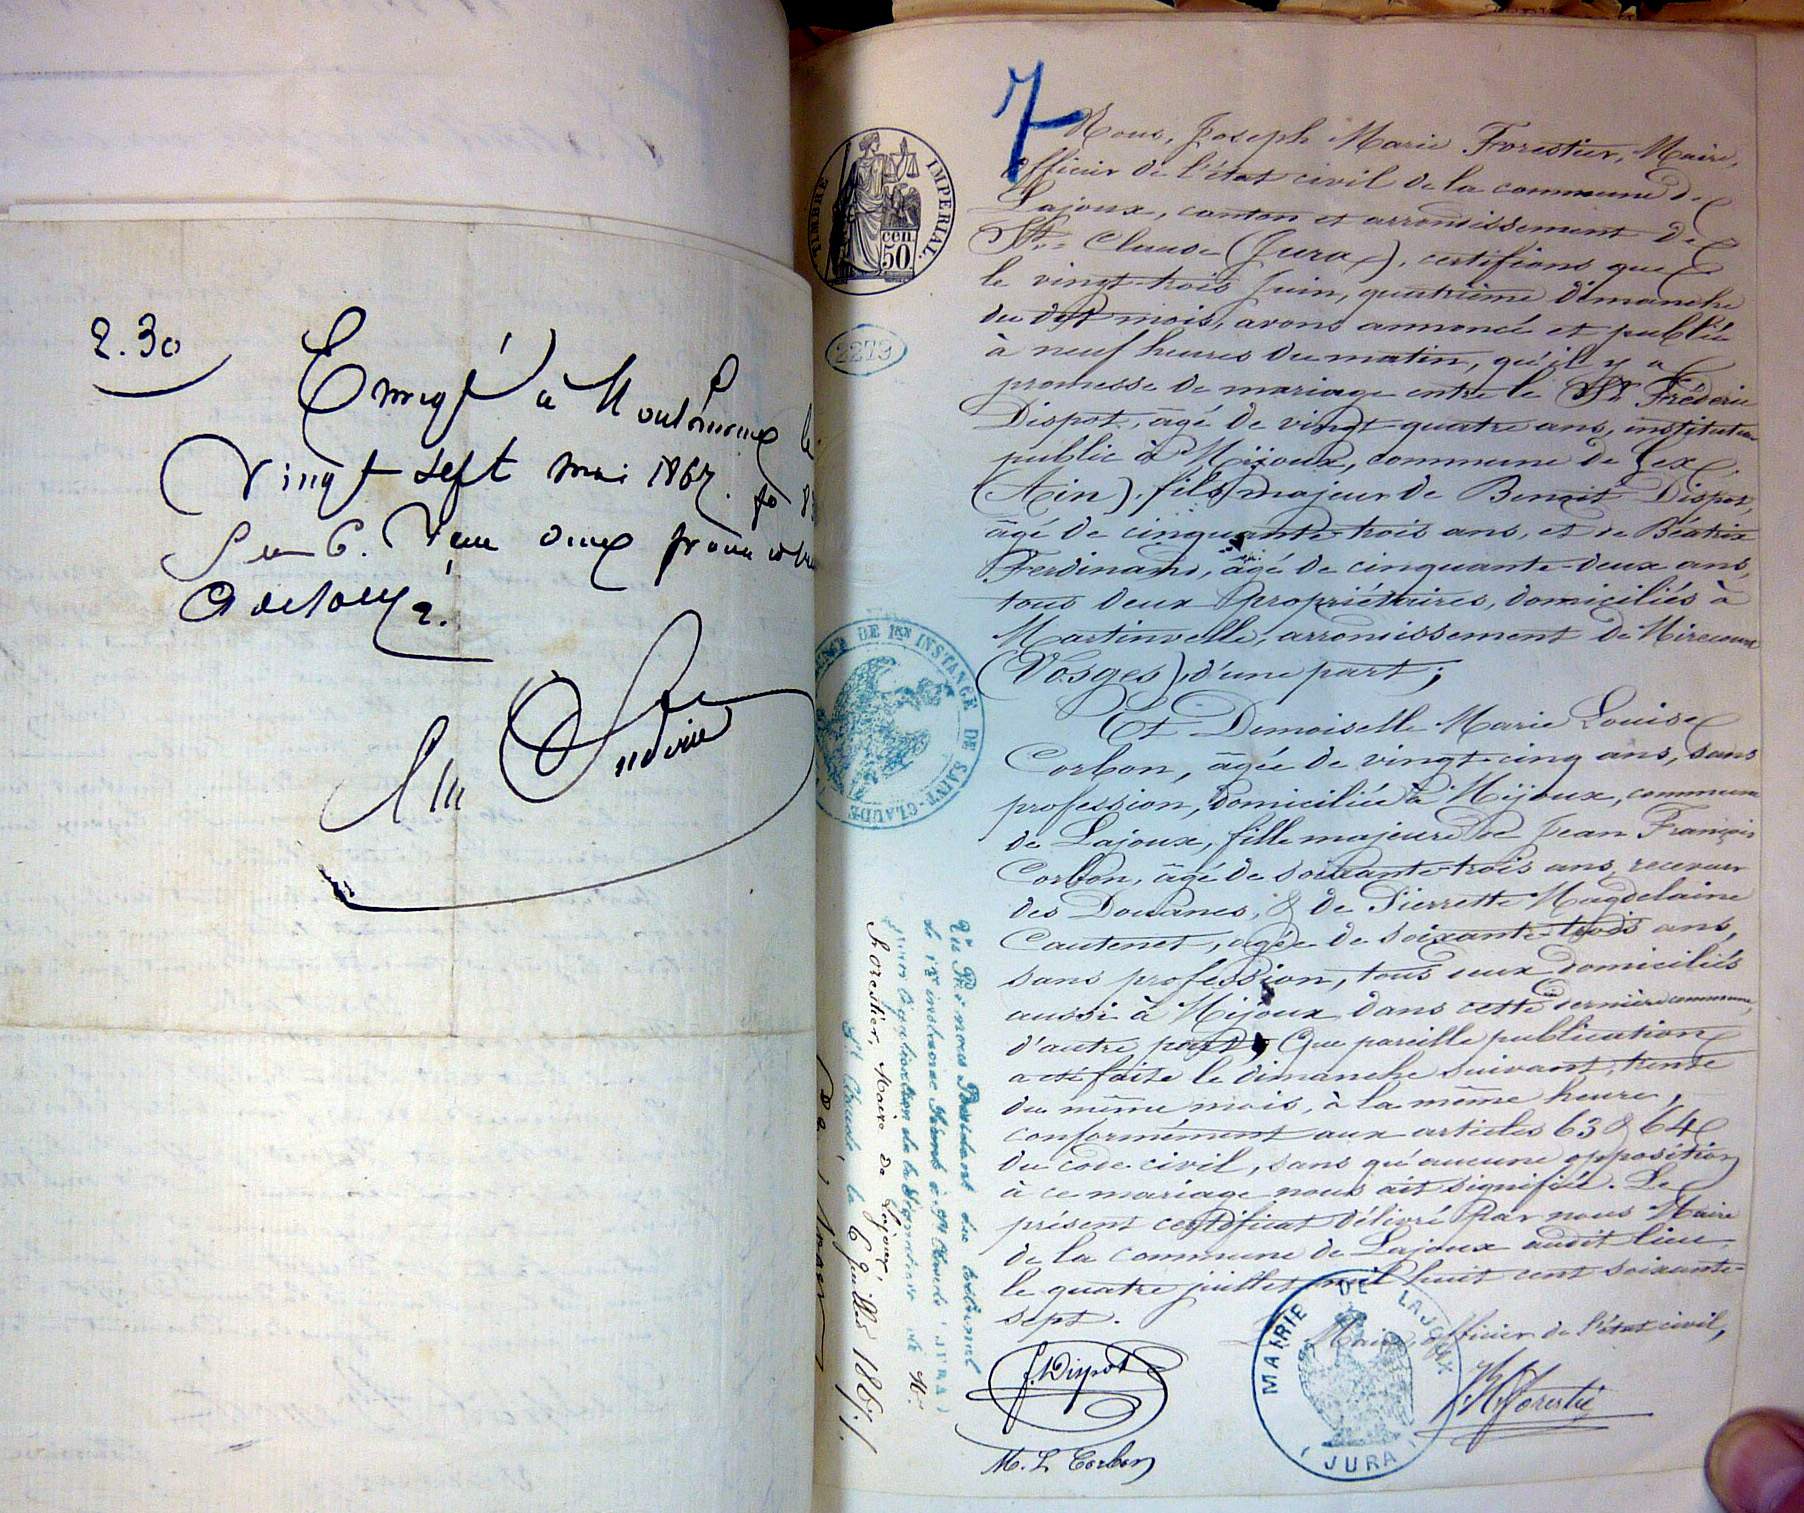 2.30
Enregé à
vingt sept mai 1867. fo
deux francs
7
TIMBRE IMPERIAL
cen.
50
2279
Nous, Joseph Marie Forestier, Maire,
officier de l'état civil de la commune de
Lajoux, canton et arrondissement de
St. Claude (Jura), certifions que
le vingt-trois Juin, quatrième dimanche
du dit mois, avons annoncé et publié
à neuf heures du matin, qu'il y a
promesse de mariage entre le Sr. Fréderic
Dispot, âgé de vingt-quatre ans, instituteur
public à Mijoux, commune de Gex
(Ain), fils majeur de Benoit Dispot,
âgé de cinquante-trois ans, et de Béatrix
Ferdinand, âgé de cinquante-deux ans,
tous deux propriétaires, domiciliés à
Martinvelle, arrondissement de Mirecourt
(Vosges), d'une part;
Et Demoiselle Marie Louise
Corbon, âgée de vingt-cinq ans, sans
profession, domiciliée à Mijoux, commune
de Lajoux, fille majeure de Jean François
Corbon, âgé de soixante-trois ans, receveur
des Douanes, & de Pierrette Magdelaine
Cautenet, agée de soixante-trois ans,
sans profession, tous deux domiciliés
aussi à Mijoux dans cette dernière commune,
d'autre part; Que pareille publication
a été faite le dimanche suivant, trente
du même mois, à la même heure,
conformément aux articles 63 & 64
du code civil, sans qu'aucune opposition
à ce mariage nous ait signifiée. Le
présent certificat délivré par nous Maire
de la commune de Lajoux audit lieu,
le quatre juillet mil huit cent soixante-
sept.
Le Maire, officier de l'état civil,
F. Dispot
M. L. Corbon
JM Forestier
MAIRIE DE LAJOUX
( JURA )
DE 1ERE INSTANCE DE SAINT-CLAUDE
Vu Par nous Président du tribunal
de 1re instance séant à St Claude (JURA)
pour légalisation de la signature de Mr.
Forestier, Maire de Lajoux,
St Claude, le 6 Juillet 1867.